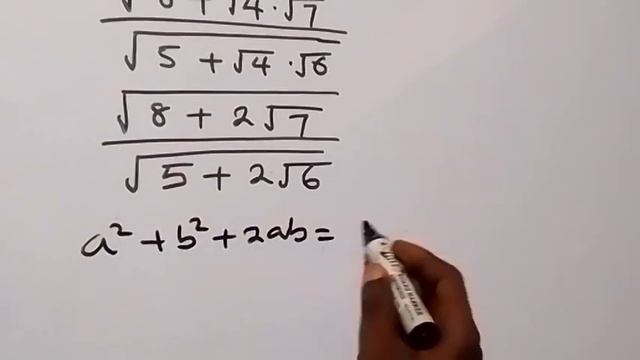 √8 + √4 · √7
√5 + √4 · √6
√8 + 2√7
√5 + 2√6
a² + b² + 2ab =